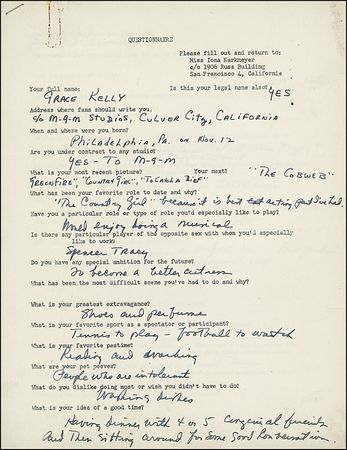 QUESTIONNAIRE
Please fill out and return to:
Miss Iona Karkmeyer
c/o 1906 Russ Building
San Francisco 4, California
Your full name: Is this your legal name also? YES
GRACE KELLY
Address where fans should write you.
c/o M-G-M STUDIOS, CULVER CITY, CALIFORNIA
When and where were you born?
PhilaDelphia, Pa. on Nov. 12
Are you under contract to any studio?
YES - To M-G-M
What is your most recent picture? Your next? "The COBWEB"
"GREEN FIRE", "COUNTRY GIRL", "To CATCH A THIEF"
What has been your favorite role to date and why?
"The Country Girl" because it is best acting part I've had.
Have you a particular role or type of role you'd especially like to play?
Would enjoy doing a musical
Is there any particular player of the opposite sex with whom you'd especially
like to work?
Spencer Tracy
Do you have any special ambition for the future?
To become a better actress
What has been the most difficult scene you've had to do and why?
What is your greatest extravagance?
Shoes and perfume
What is your favorite sport as a spectator or participant?
Tennis to play - football to watch
What is your favorite pastime?
Reading and
What are your pet peeves?
People who are intolerant
What do you dislike doing most or wish you didn't have to do?
Washing dishes
What is your idea of a good time?
Having dinner with 4 or 5 congenial friends
And then sitting around for some good conversation.